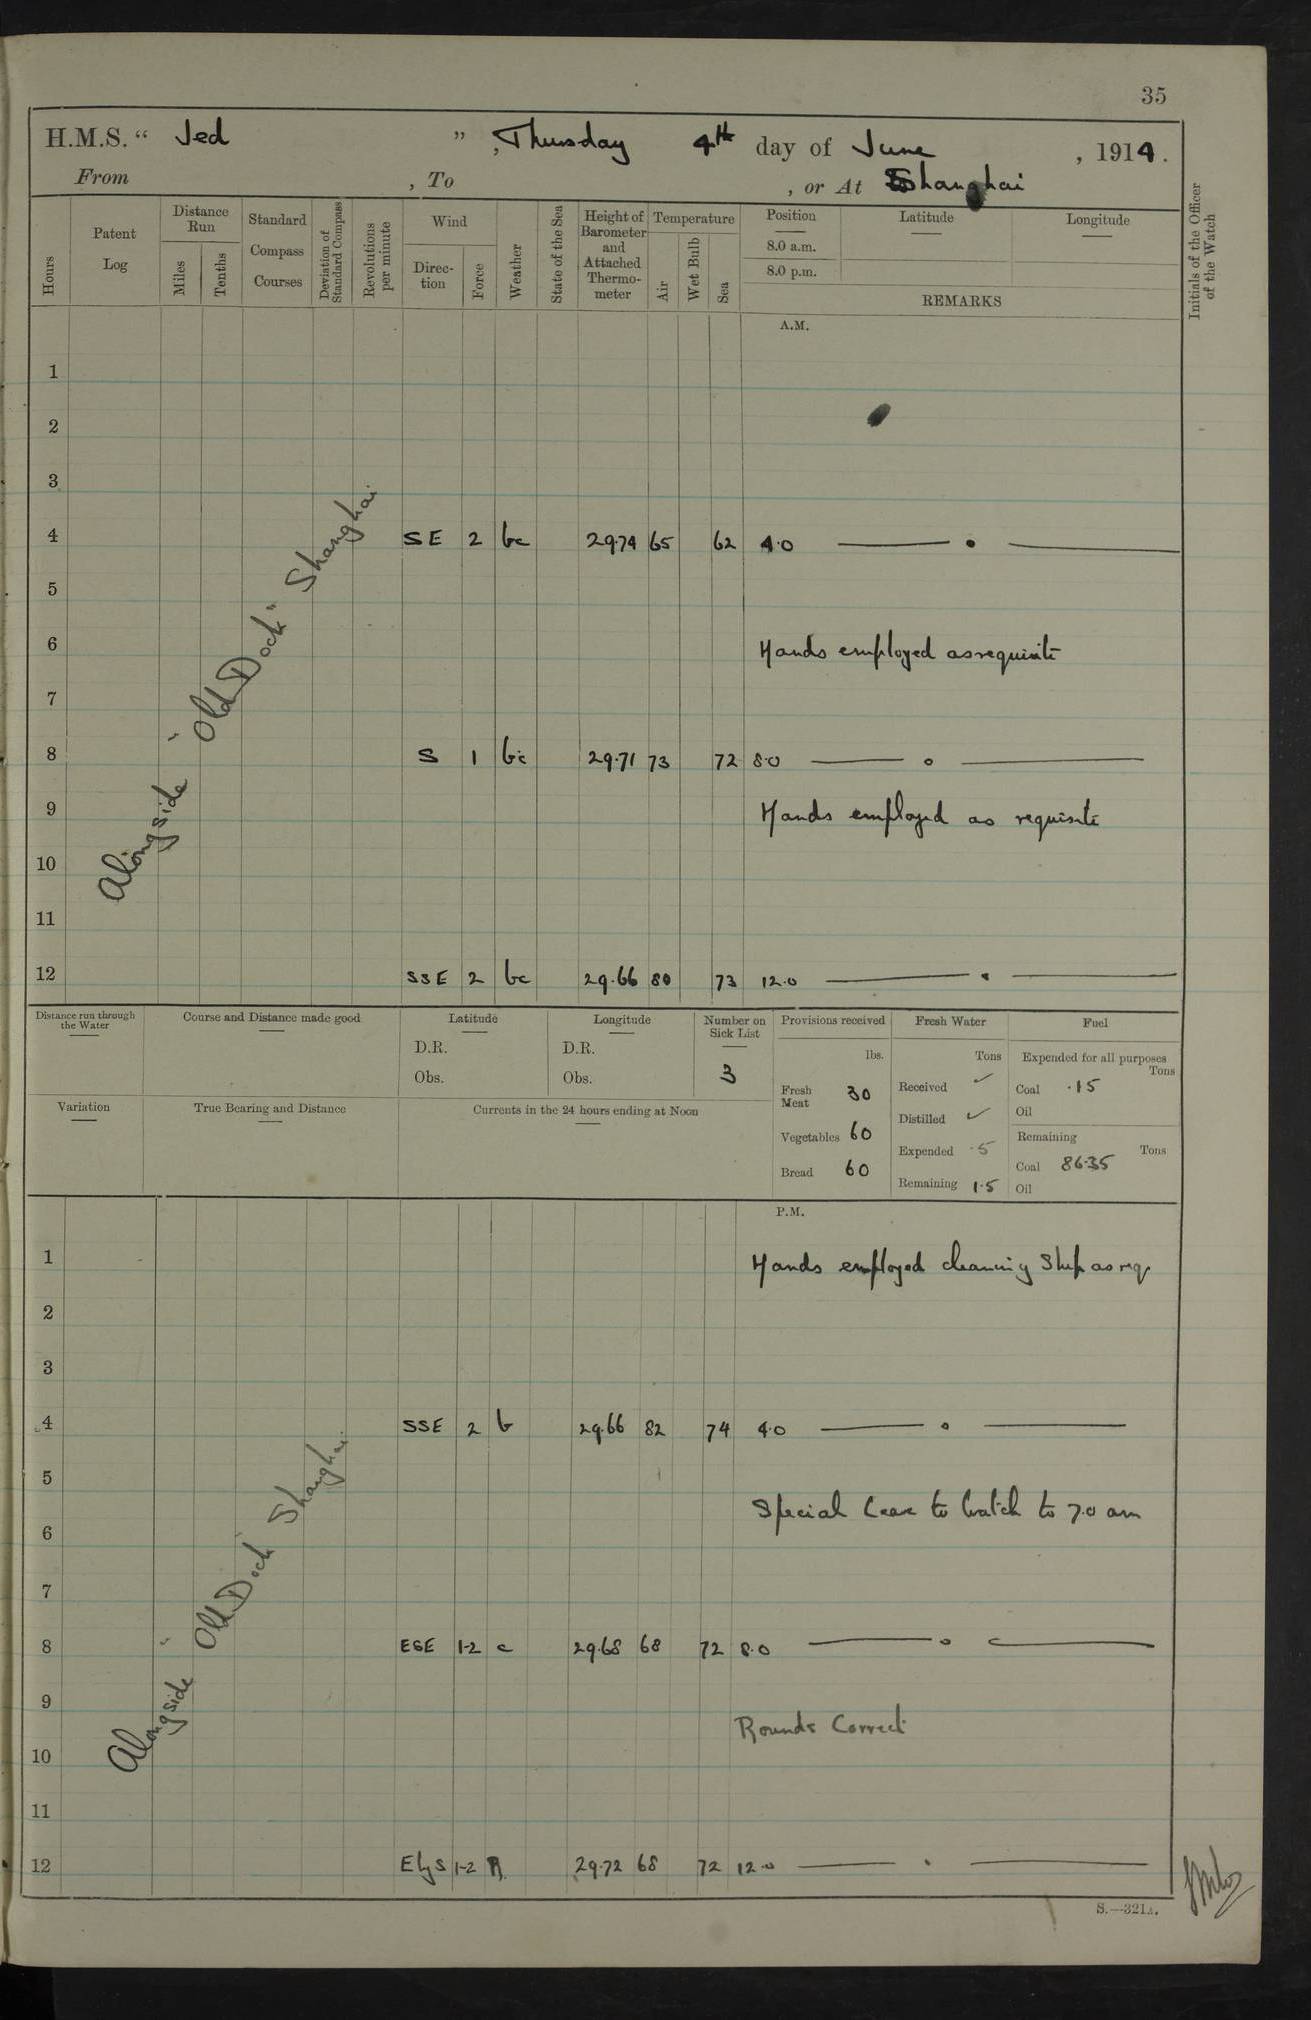 35
H.M.S. “ Jed ” , Thursday 4th day of June , 1914.
From , To , or At Shanghai
Hours
Patent Log
Distance Run
Miles
Tenths
Standard Compass Courses
Deviation of Standard Compass
Revolutions per minute
Wind
Direc-tion
Force
Weather
State of the Sea
Height of Barometer and Attached Thermo-meter
Temperature
Air
Wet Bulb
Sea
Position
8.0 a.m.
8.0 p.m.
Latitude
Longitude
REMARKS
Initials of the Officer of the Watch
A.M.
1
2
3
4 SE 2 bc 29.74 65 62 4.0
5
6 Hands employed as requisite
7
8 S 1 bc 29.71 73 72 8.0
9 Hands employed as requisite
10
11
12 SSE 2 bc 29.66 80 73 12.0
Alongside "Old Dock" Shanghai
Distance run through the Water
Course and Distance made good
Latitude
D.R.
Obs.
Longitude
D.R.
Obs.
Number on Sick List
3
Provisions received
lbs.
Fresh Meat 30
Vegetables 60
Bread 60
Fresh Water
Tons
Received ✓
Distilled ✓
Expended .5
Remaining 1.5
Fuel
Expended for all purposes
Tons
Coal .15
Oil
Remaining
Tons
Coal 86.35
Oil
Variation
True Bearing and Distance
Currents in the 24 hours ending at Noon
P.M.
1 Hands employed cleaning Ship as req.
2
3
4 SSE 2 b 29.66 82 74 4.0
5
Special Leave to Watch to 7.0 am
6
7
8 ESE 1-2 c 29.68 68 72 8.0
9
Rounds Correct
10
11
12 E by S 1-2 R 29.72 68 72 12.0
Alongside "Old Dock" Shanghai
S.—321A.